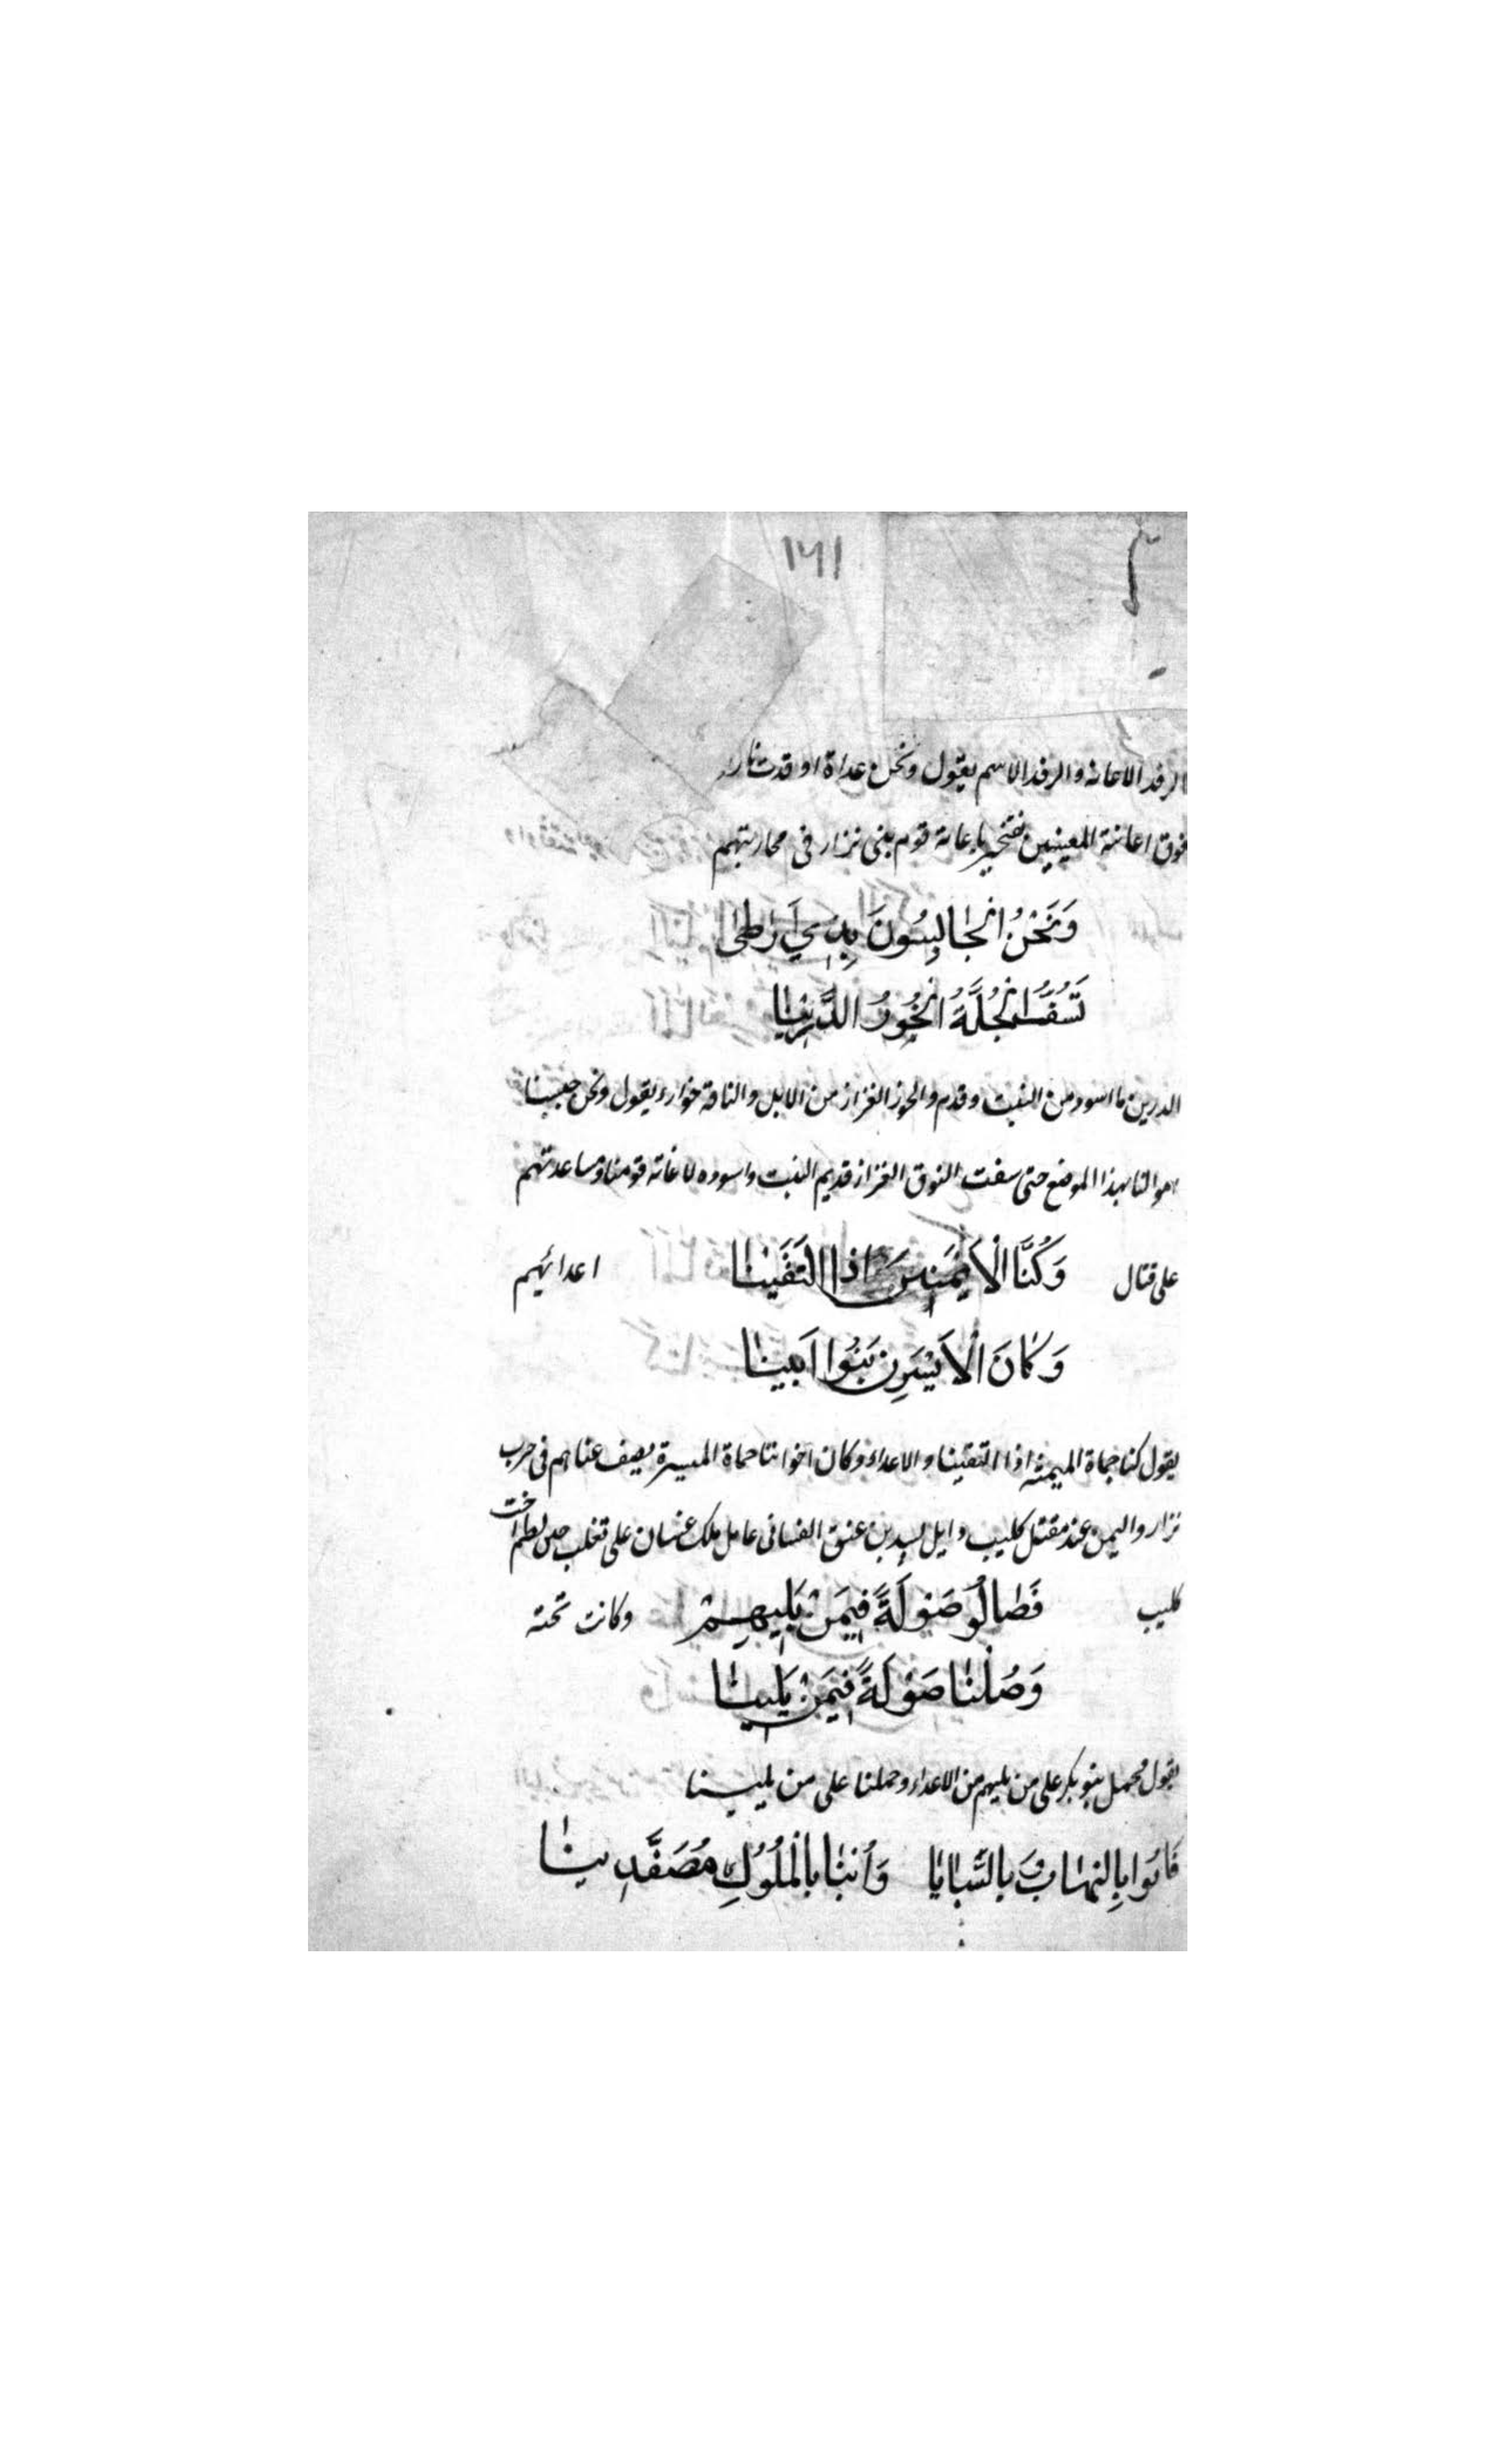 ١٦١
الرفد الاعانة والرفد الاسم يقول ونحن غداة اوقدت نارا
فوق اعانة المعينين نفتخر باعانة قوم بنى نزار فى محاربتهم
وَنَحْنُ الْجٰالِسُونَ بِذِي اَرٰطىٰ
تَسُفُّ الْجُلَّةُ الْخُورُ الدَّرِينٰا
الدرين ما اسود من النبت وقدم والخور الغزاز من الابل والناقة خوارء يقول ونحن حبسنا
اموالنا بهذا الموضع حتى سفت النوق الغزاز قديم النبت واسوده لاغاثة قومنا ومساعدتهم
على قتال وَكُنَّا الْاَيْمَنِينَ اذا الْتَقَيْنٰا اعدائهم
وَكٰانَ الْاَيْسَرِينَ بَنُوا اَبِينٰا
يقول كنا حماة الميمنة اذا التقينا والاعداء وكان اخواننا حماة الميسرة يصف عناهم فى حرب
نزار واليمن عند مقتل كليب وايل لبيد بن عنق الغسانى عامل ملك غسان على تغلب حين لطم اخت
كليب فَصٰالُو صَوْلَةً فِيمَنْ يَلِيهِمْ وكانت تحته
وَصُلْنٰا صَوْلَةً فِيمَنْ يَلِينٰا
يقول فحمل بنو بكر على من يليهم من الاعداء وحملنا على من يلينا
فَابُوا بِالنِهٰابِ وَبِالسَّبٰايٰا وَاُبْنٰا بِالْمُلُوكِ مُصَفَّدِينٰا